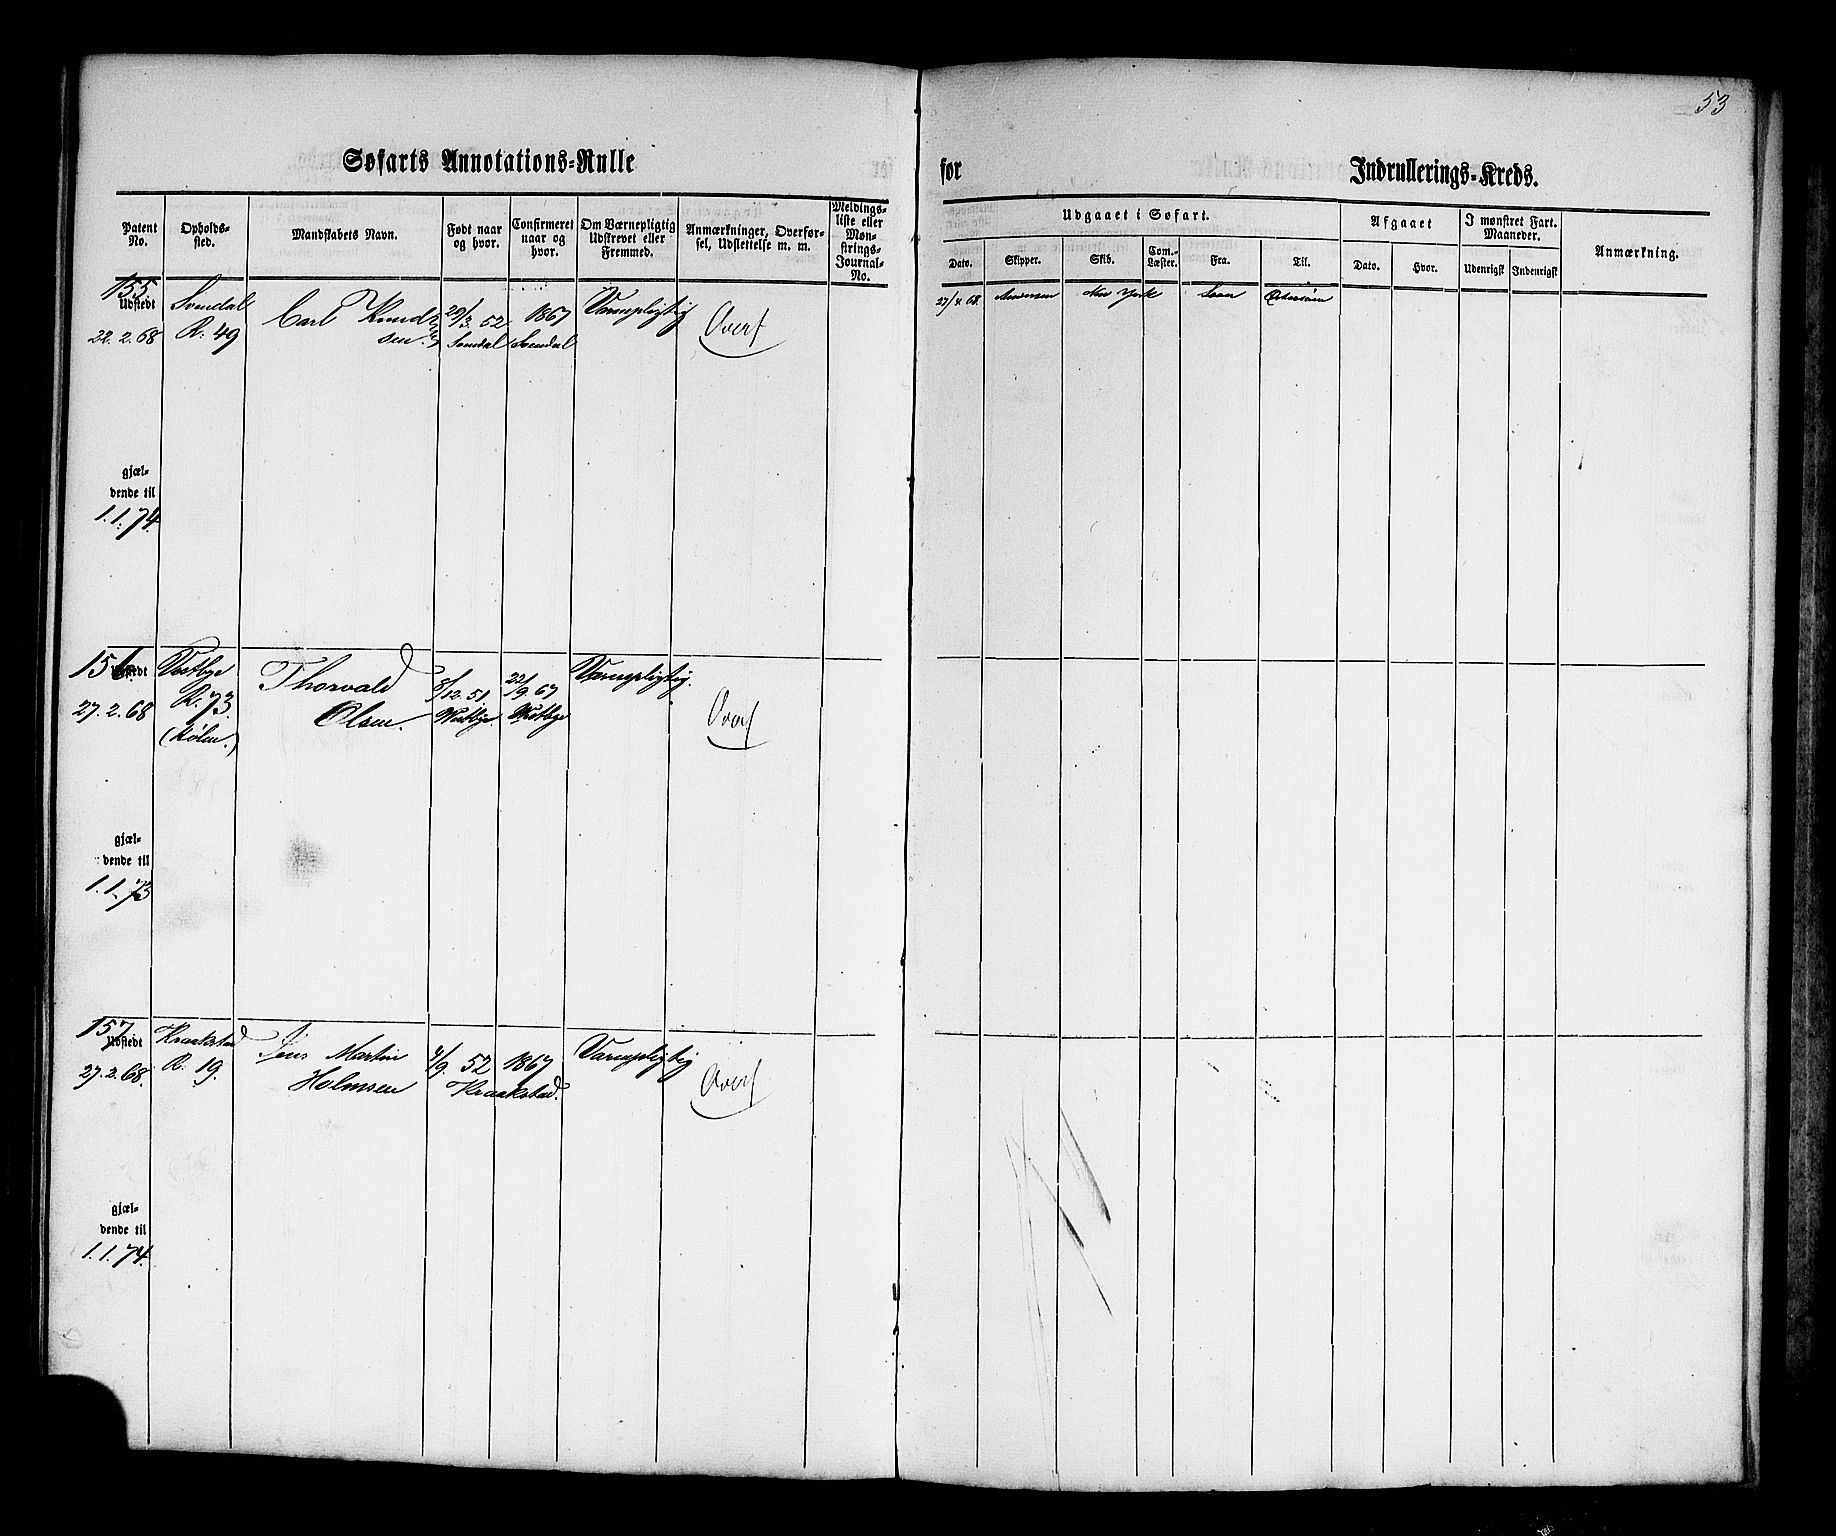 53
Søfarts Annotations-Rulle
for Indrullerings-Kreds.
Patent No.
Opholds-sted.
Mandskabets Navn.
Født naar og hvor.
Confirmeret naar og hvor.
Om Værnepligtig Udskrevet eller Fremmed.
Anmærkninger, Overførsel, Udslettelse m. m.
Meldings-liste eller Mønstrings-Journal-No.
Udgaaet i Søfart.
Afgaaet
I mønstret Fart. Maaneder.
Anmærkning.
Dato.
Skipper.
Skib.
Com.-Læster.
Fra.
Til.
Dato.
Hvor.
Udenrigsk
Indenrigsk
155
Udstedt
22.2.68
R. 49
Carl Knud
sen.
3. 52
1867
Værnepligtig
Overf
27/4 68
New York
gjæl-
dende til
1.1.74.
156
Udstedt
27.2.68
Vestbye
R. 73.
Thorvald
Olsen.
8/12. 51
Vestbye.
22/9. 67
Vestbye
Værnepligtig.
Overf
gjæl-
dende til
1.1.73
157
Udstedt
27.2.68.
Kraakstad
R. 19.
Jens Martin
Holmsen
/9. 52
1867
Kraakstad.
Værnepligtig
Overf
gjæl-
dende til
1.1.74.